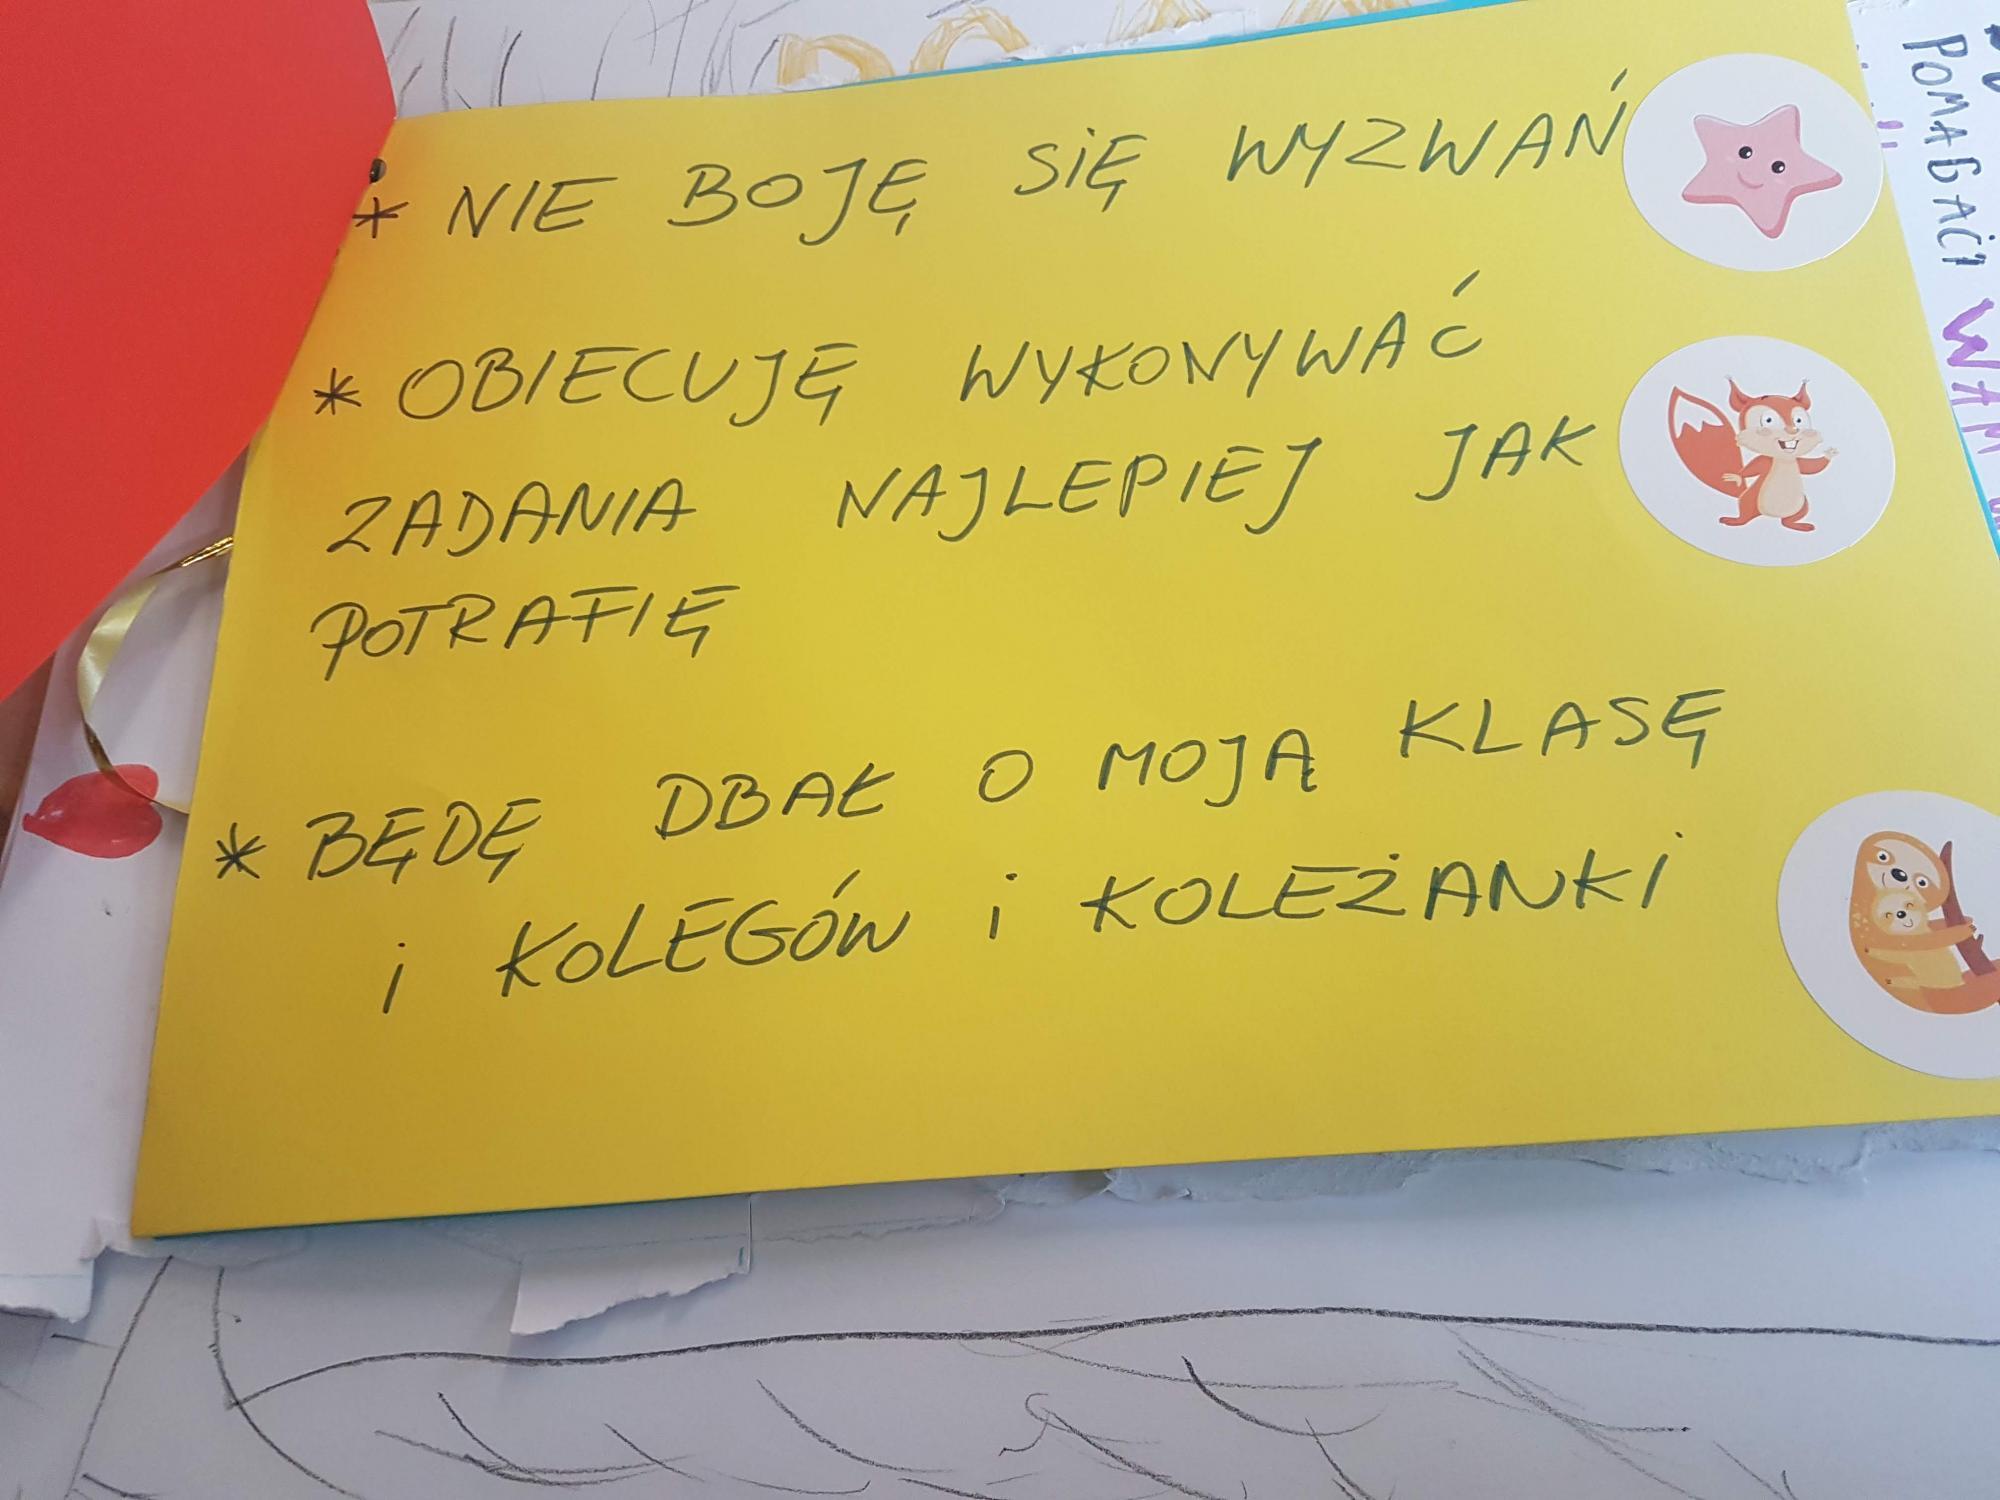 * NIE BOJĘ SIĘ WYZWAŃ
* OBIECUJĘ WYKONYWAĆ
ZADANIA NAJLEPIEJ JAK
POTRAFIĘ
* BĘDĘ DBAŁ O MOJĄ KLASĘ
i KOLEGÓW i KOLEŻANKI
POMAGAĆ
WAM